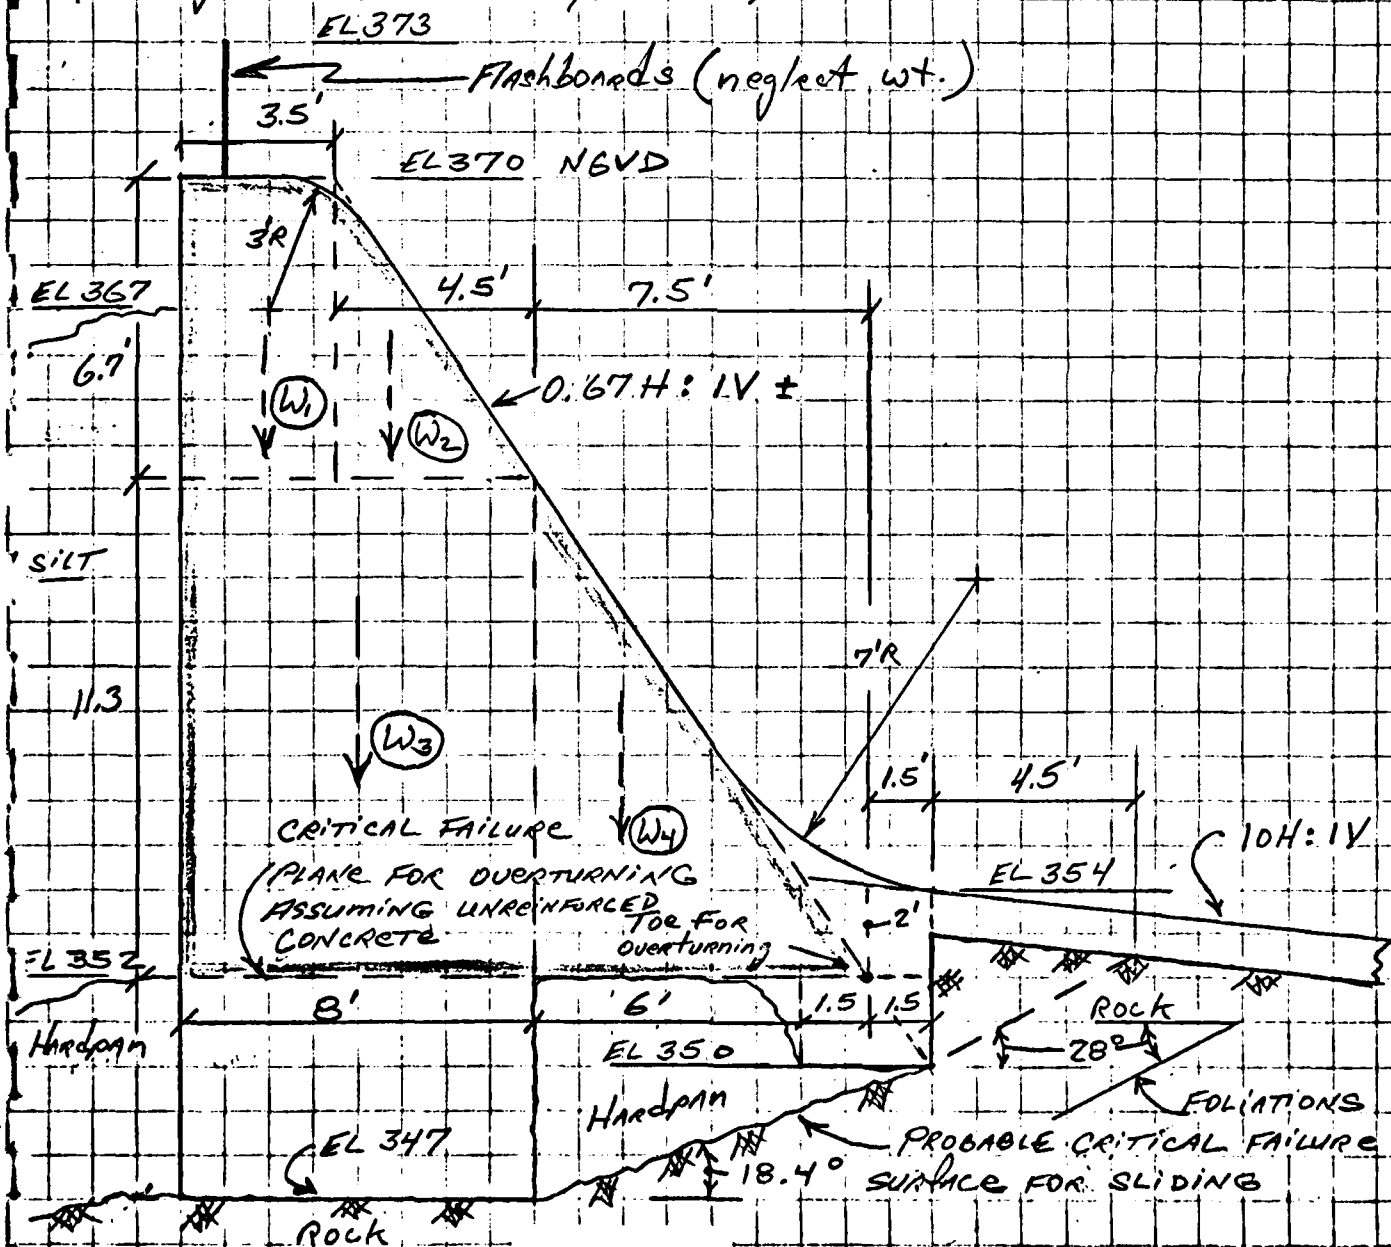 EL 373
Flashboards (neglect wt.)
3.5'
EL 370 NGVD
3'R
EL 367
4.5'
7.5'
6.7'
0.67 H : 1V ±
W1
W2
SILT
7'R
11.3
W3
1.5'
4.5'
W4
10H : 1V
CRITICAL FAILURE
PLANE FOR OVERTURNING
ASSUMING UNREINFORCED
CONCRETE
EL 354
2'
TOE FOR
OVERTURNING
EL 352
8'
6'
1.5
1.5
ROCK
Hardpan
EL 350
28°
Hardpan
FOLIATIONS
EL 347
PROBABLE CRITICAL FAILURE
SURFACE FOR SLIDING
18.4°
ROCK